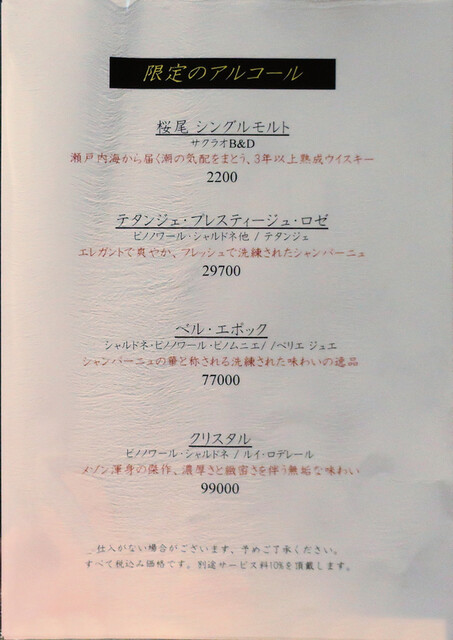 限定のアルコール
桜尾 シングルモルト
サクラオB&D
瀬戸内海から届く潮の気配をまとう、3年以上熟成ウイスキー
2200
テタンジェ・プレスティージュ・ロゼ
ピノノワール・シャルドネ他 / テタンジェ
エレガントで爽やか、フレッシュで洗練されたシャンパーニュ
29700
ベル・エポック
シャルドネ・ピノノワール・ピノムニエ/ /ペリエ ジュエ
シャンパーニュの華と称される洗練された味わいの逸品
77000
クリスタル
ピノノワール・シャルドネ / ルイ・ロデレール
メゾン渾身の傑作、濃厚さと緻密さを伴う無垢な味わい
99000
仕入がない場合がございます、予めご了承ください。
すべて税込み価格です。別途サービス料10%を頂戴します。